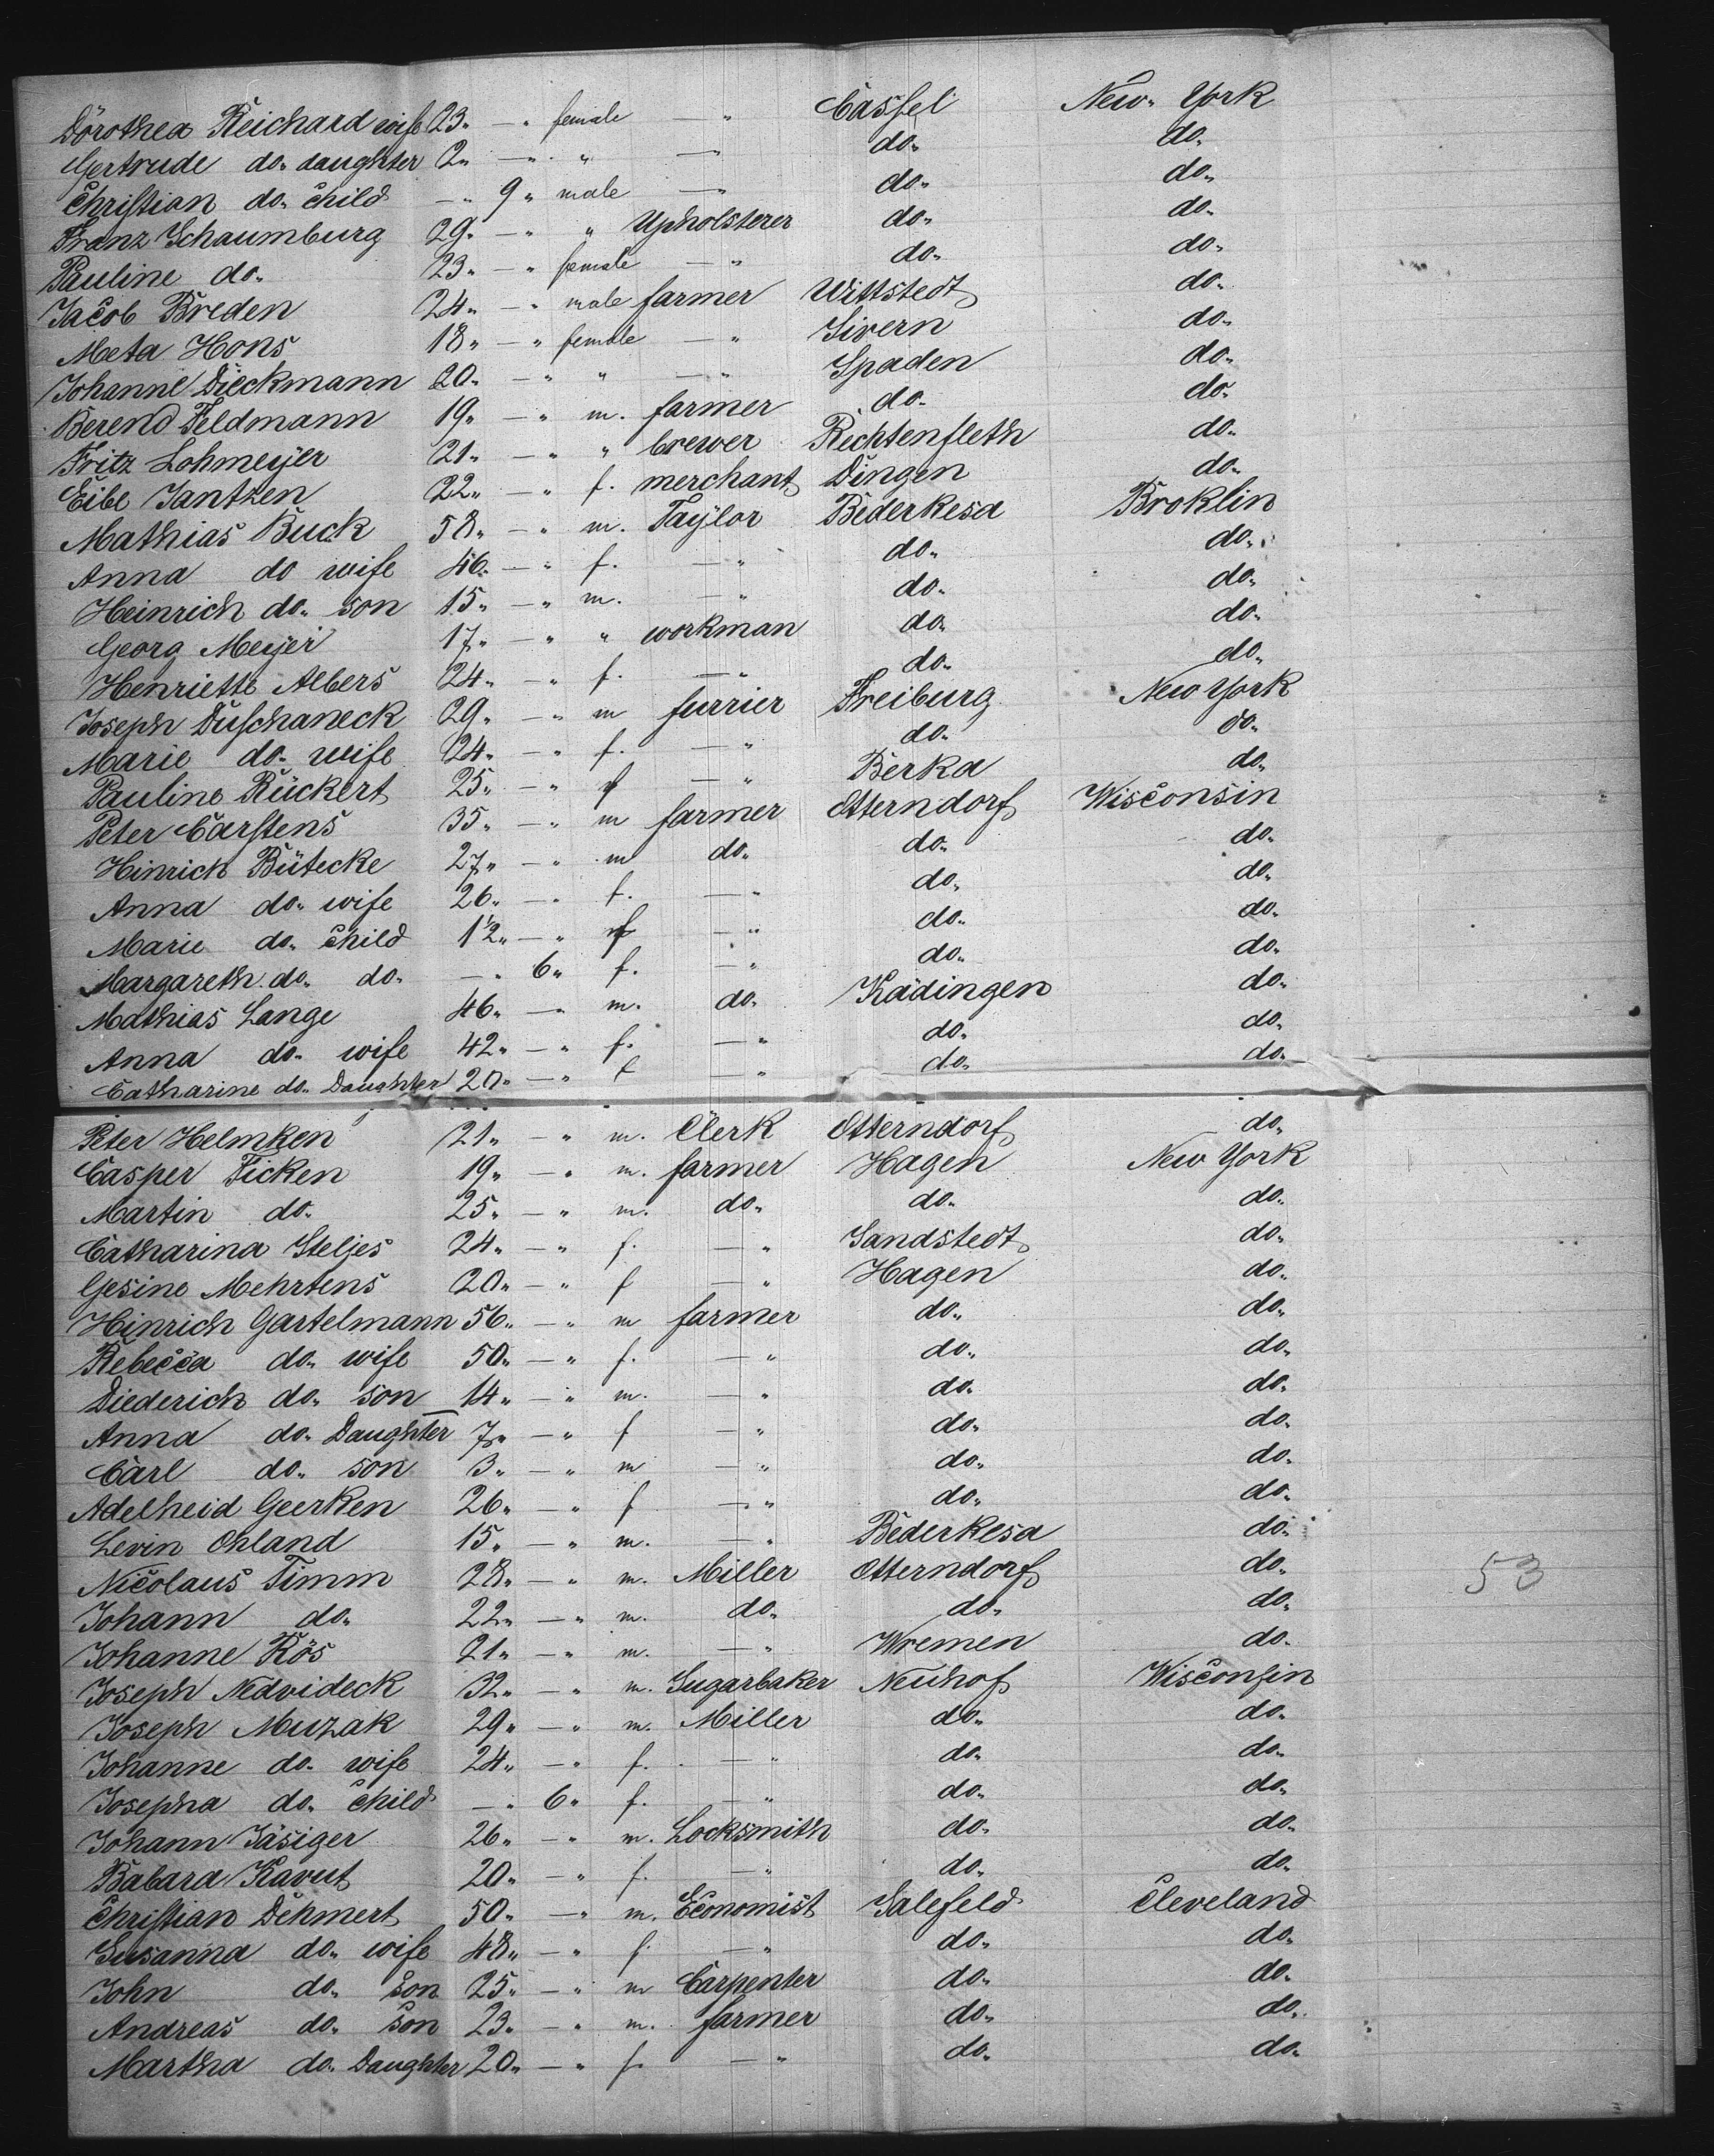 Dorothea Reichard wife 23 " — " female — " Cassel New-York
Gertrude do. daughter 2 " — " " — " do. do.
Christian do. Child — " 9 " male — " do. do.
Franz Schaumburg 29 " — " " Upholsterer do. do.
Pauline do. 23 " — " female — " do. do.
Jacob Breden 24 " — " male farmer Wittstedt do.
Meta Hons 18 " — " female — " Sivern do.
Johanne Dieckmann 20 " — " " — " Spaden do.
Berend Feldmann 19 " — " m. farmer do. do.
Fritz Lohmeyer 21 " — " " brewer Rechtenfleth do.
Eibe Jantzen 22 " — " f. merchant Dingen do.
Mathias Buck 58 " — " m. Taylor Bederkesa Broklin
Anna do wife 46 " — " f. — " do. do.
Heinrich do. son 15 " — " m. — " do. do.
Georg Meyer 17 " — " " workman do. do.
Henriette Albers 24 " — " f. — " do. do.
Joseph Duschaneck 29 " — " m furrier Freiburg New York
Marie do. wife 24 " — " f. — " do. do.
Pauline Rückert 25 " — " f — " Berka do.
Peter Carstens 35 " — " m farmer Otterndorf Wisconsin
Hinrich Bütecke 27 " — " m do. do. do.
Anna do. wife 26 " — " f. — " do. do.
Marie do. Child 1 1/2 " — " f — " do. do.
Margareth. do. do. — " 6 " f. — " do. do.
Mathias Lange 46 " — " m. do. Kädingen do.
Anna do. wife 42 " — " f. — " do. do.
Catharine do. Daughter 20 " — " f — " do. do.
Peter Helmken 21 " — " m. Clerk Otterndorf do.
Casper Ficken 19 " — " m. farmer Hagen New York
Martin do. 25 " — " m. do. do. do.
Catharina Steljes 24 " — " f. — " Sandstedt do.
Gesine Mehrtens 20 " — " f — " Hagen do.
Hinrich Gartelmann 56 " — " m farmer do. do.
Rebecca do. wife 50 " — " f. — " do. do.
Diederich do. son 14 " — " m. — " do. do.
Anna do. Daughter 7 " — " f — " do. do.
Carl do. son 3 " — " m — " do. do.
Adelheid Geerken 26 " — " f — " do. do.
Levin Ohland 15 " — " m. — " Bederkesa do.
Nicolaus Timm 28 " — " m. Miller Otterndorf do.
53
Johann do. 22 " — " m. do. do. do.
Johanne Kös 21 " — " m. — " Wremen do.
Joseph Nedvideck 32 " — " m. Sugarbaker Neuhof Wisconsin
Joseph Muzak 29 " — " m. Miller do. do.
Johanne do. wife 24 " — " f. — " do. do.
Josepha do. Child — " 6 " f. — " do. do.
Johann Jäsiger 26 " — " m. Locksmith do. do.
Babara Kavut 20 " — " f. — " do. do.
Christian Dehmert 50 " — " m. Economist Salefeld Cleveland
Susanna do. wife 48 " — " f. — " do. do.
John do. Son 25 " — " m Carpenter do. do.
Andreas do. Son 23 " — " m. farmer do. do.
Martha do. Daughter 20 " — " f. — " do. do.